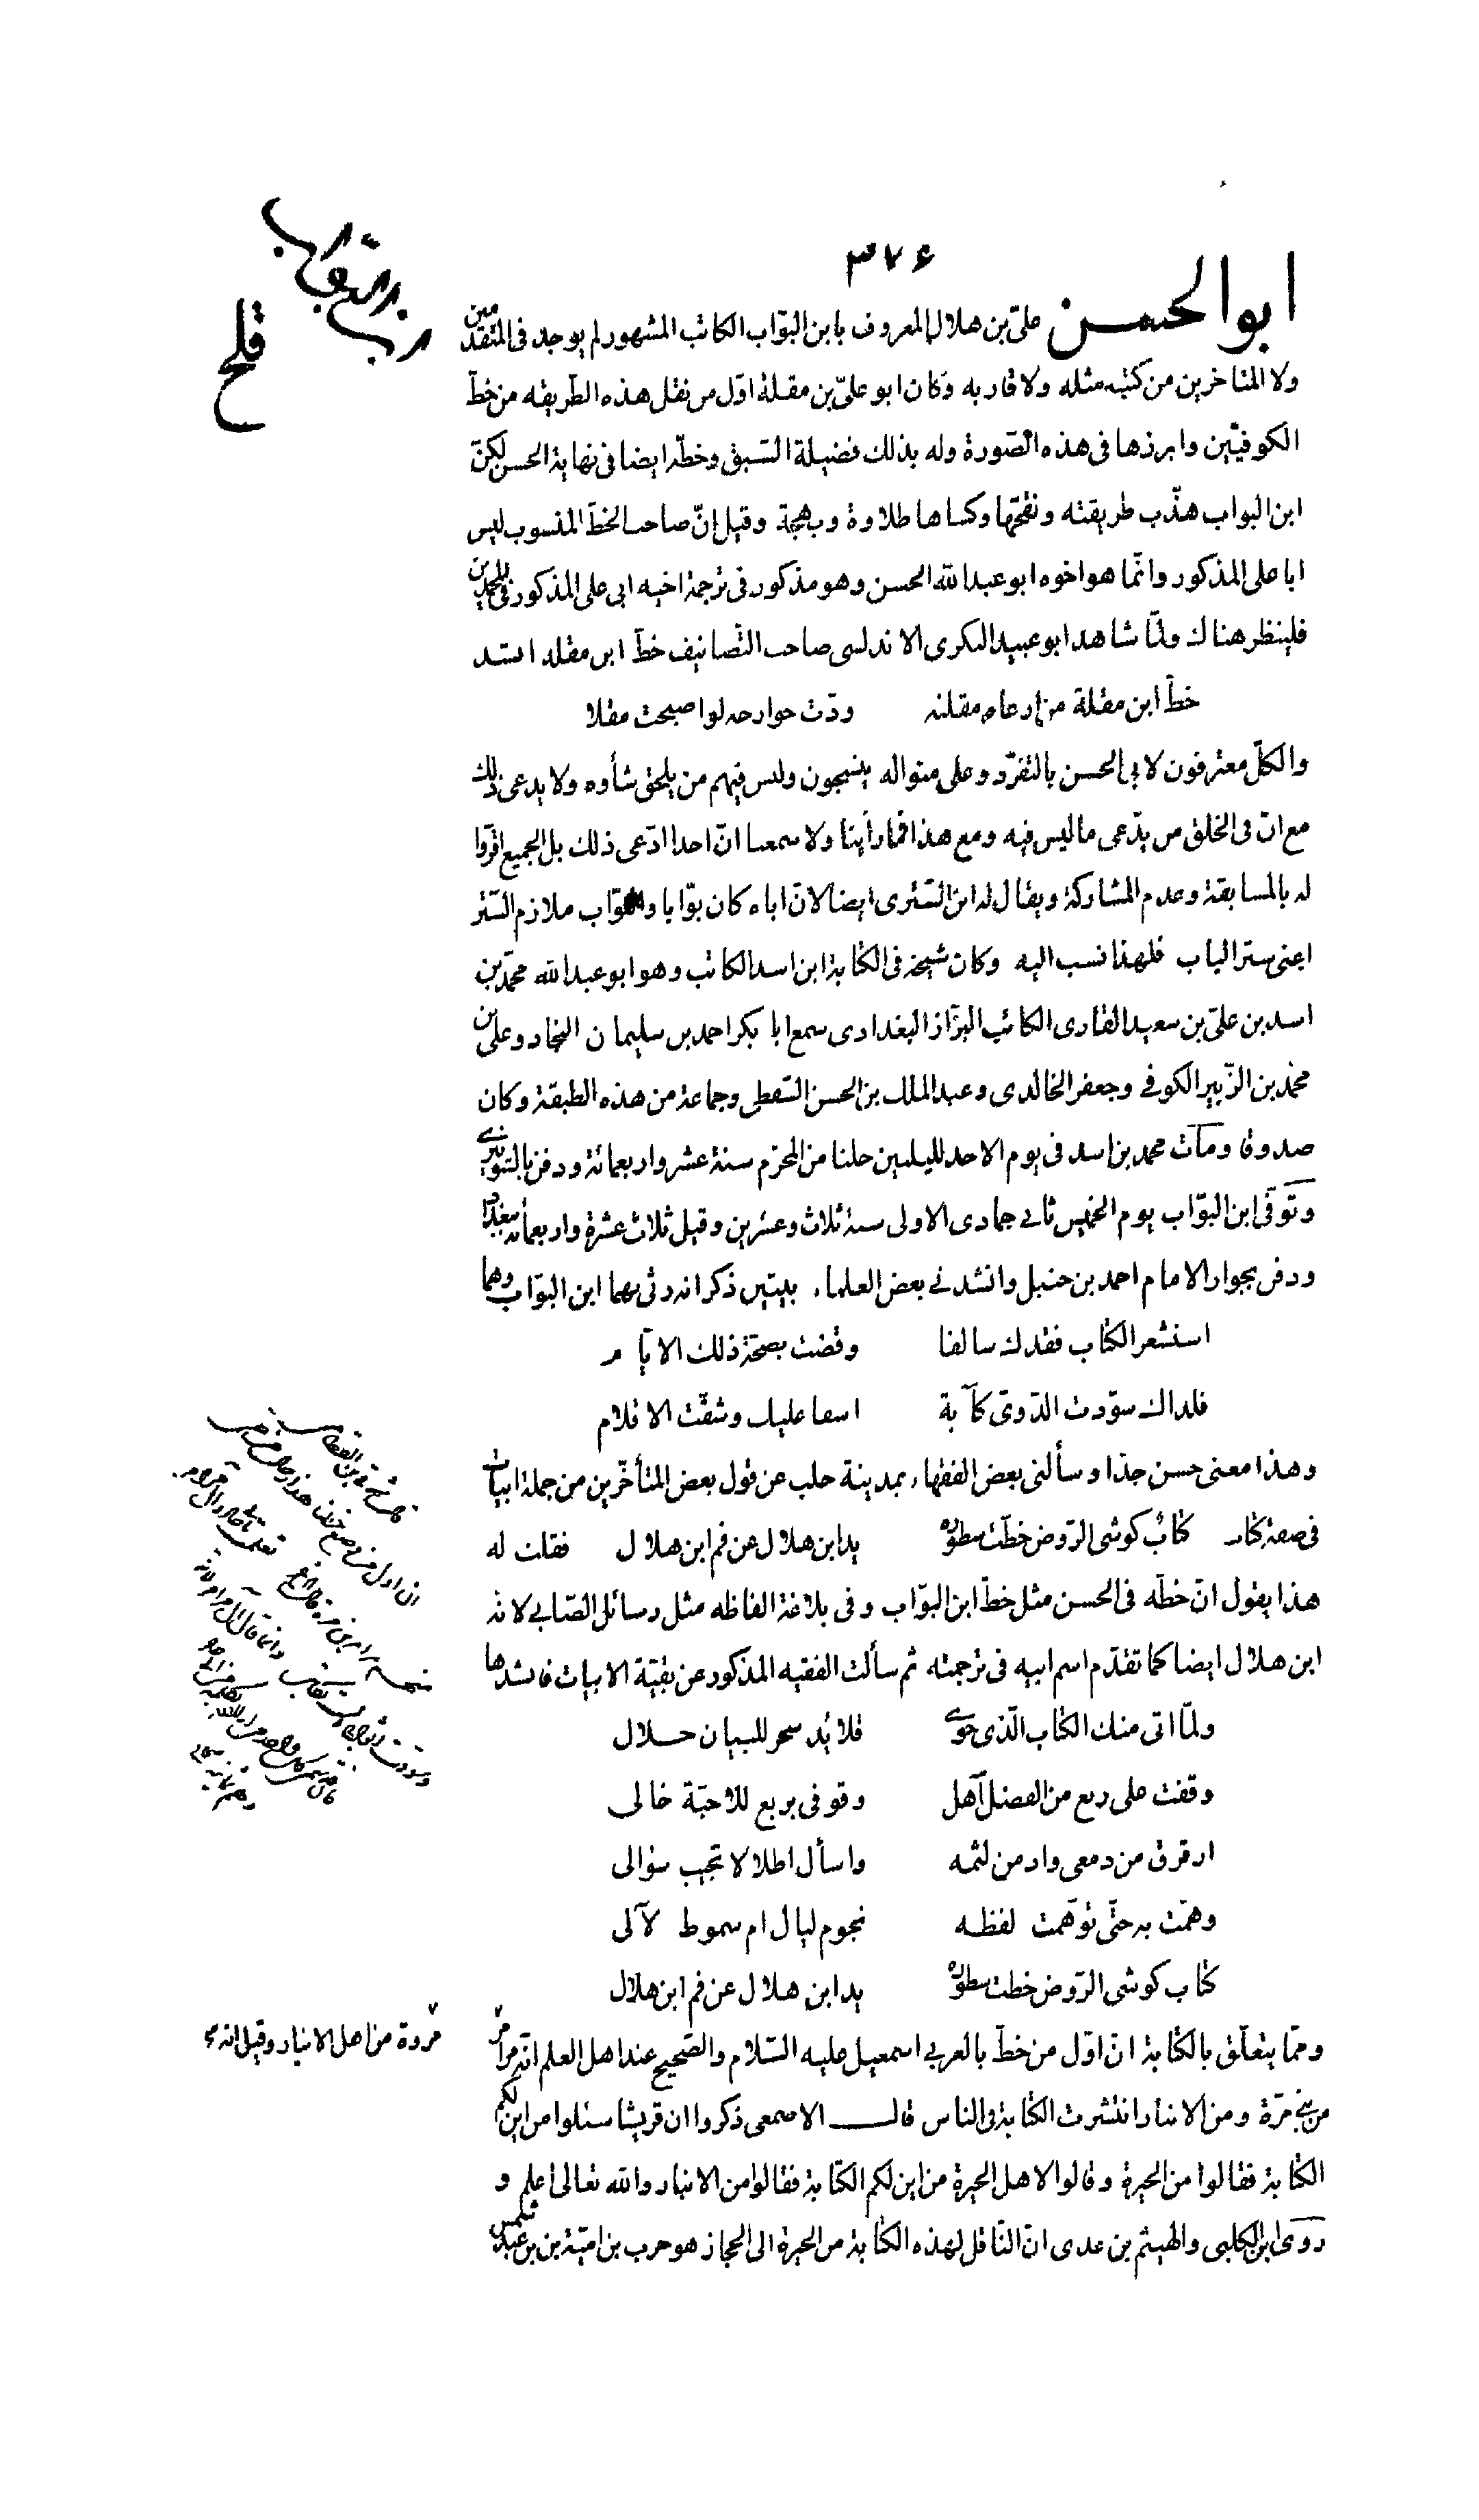 ٣٧٤
ابن البواب
ابو الحسن علىّ بن هلال المعروف بابن البوّاب الكاتب المشهور لم يوجد فى المتقدمين
ولا المتاخرين من كتب مثله ولا قاربه وكان ابو علىّ بن مقلة اوّل من نقل هذه الطّريقه من خطّ
الكوفيّين وابرزها فى هذه الصّورة وله بذلك فضيلة السّبق وخطّه ايضا فى نهاية الحسن لكنّ
ابن البواب هذّب طريقته ونقّحها وكساها طلاوة وبهجة وقيل انّ صاحب الخطّ المنسوب ليس
ابا على المذكور وانّما هو اخوه ابو عبد الله الحسن وهو مذكور فى ترجمة اخيه ابى على المذكور فى المحمدين
فلينظر هناك ولمّا شاهد ابو عبيد البكرى الاندلسى صاحب التّصانيف خطّ ابن مقله انشد
خطّ ابن مقلة من ارعاه مقلته ودّت جوارحه لو اصبحت مقلا
والكلّ معترفون لابى الحسن بالتفرّد وعلى منواله ينسجون وليس فيهم من يلحق شأوه ولا يدعى ذلك
مع انّ فى الخلق من يدّعى ما ليس فيه ومع هذا فما رأينا ولا سمعنا انّ احدا ادّعى ذلك بل الجميع اقرّوا
له بالمسابقة وعدم المشاركة ويقال له ابن السّترى ايضا لانّ اباه كان بوّابا والبوّاب ملازم السّتر
اعنى ستر الباب فلهذا نسب اليه وكان شيخه فى الكتابة ابن اسد الكاتب وهو ابو عبد الله محمّد بن
اسد بن علىّ بن سعيد القارى الكاتب البزّاز البغدادى سمع ابا بكر احمد بن سليمان النجاد وعلى بن
محمّد بن الزّبير الكوفى وجعفر الخالدى وعبد الملك بن الحسن السّقطى وجماعة من هذه الطبقة وكان
صدوق ومات محمد بن اسد فى يوم الاحد لليلتين خلتا من المحرّم سنة عشر واربعمائة ودفن بالشونيزى
وتوفّى ابن البوّاب يوم الخميس ثانى جمادى الاولى سنة ثلاث وعشرين وقيل ثلاث عشرة واربعمأته ببغداد
ودفن بجوار الامام احمد بن حنبل وانشدنى بعض العلماء بيتين ذكر انه رثى بهما ابن البوّاب وهما
استشعر الكتاب فقدك سالفا وقضت بصحّة ذلك الايّام
فلذاك سوّدت الدّوىّ كآبة اسفا عليك وشقّت الاقلام
وهذا معنى حسن جدّا وسألنى بعض الفقهاء بمدينة حلب عن قول بعض المتأخّرين من جملة ابيات
فى صفة كتاب كتابٌ كوشى الرّوض خطّت سطوره يد ابن هلال عن فم ابن هلال فقلت له
هذا يقول انّ خطّه فى الحسن مثل خطّ ابن البوّاب وفى بلاغة الفاظه مثل رسائل الصّابى لانه
ابن هلال ايضا كما تقدّم اسم ابيه فى ترجمته ثم سألت الفقيه المذكور عن بقيّة الابيات فانشدها
ولمّا اتى منك الكتاب الّذى حوى قلائد سحر للبيان حلال
وقفت على ربع من الفضل آهل وقوفى بربع للاحبّة خالى
ارقرق من دمعى وادمن لثمه واسأل اطلالا تجيب سؤالى
وهمت به حتّى توهّمت لفظه نجوم ليال ام سموط لآلى
كتاب كوشى الرّوض خطت سطوره يد ابن هلال عن فم ابن هلال
وممّا يتعلّق بالكتابة انّ اوّل من خطّ بالعربى اسمعيل عليه السّلام والصّحيح عند اهل العلم انّه مرامر
مروة من اهل الانبار وقيل انه
من بنى مرّة ومن الانبار انتشرت الكتابة فى الناس قال الاصمعى ذكروا ان قريشا سئلوا من اين لكم
الكتابة فقالوا من الحيرة وقالوا لاهل الحيرة من اين لكم الكتابة فقالوا من الانبار والله تعالى اعلم و
روى ابن الكلبى والهيثم بن عدى انّ النّاقل لهذه الكتابة من الحيرة الى الحجاز هو حرب بن اميّة بن عبد شمس